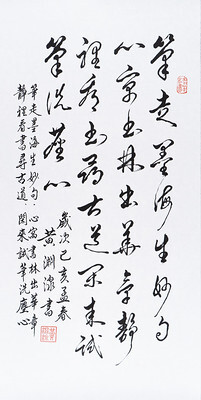 筆走墨海生妙句
心寫書林出華章靜
裡看書尋古道閑來試
筆洗塵心
歲次己亥孟春
黃淵書
筆走墨海生妙句·心寫書林出華章
靜裡看書尋古道·閑來試筆洗塵心